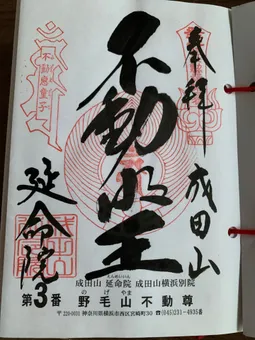 奉拝
成田山
不動尘
不動慧童子
延命院
えんめいいん
成田山 延命院 成田山横浜別院
のげやま
第3番 野毛山 不動尊
〒220-0031 神奈川県横浜市西区宮崎町30 ☎(045)231-4935番